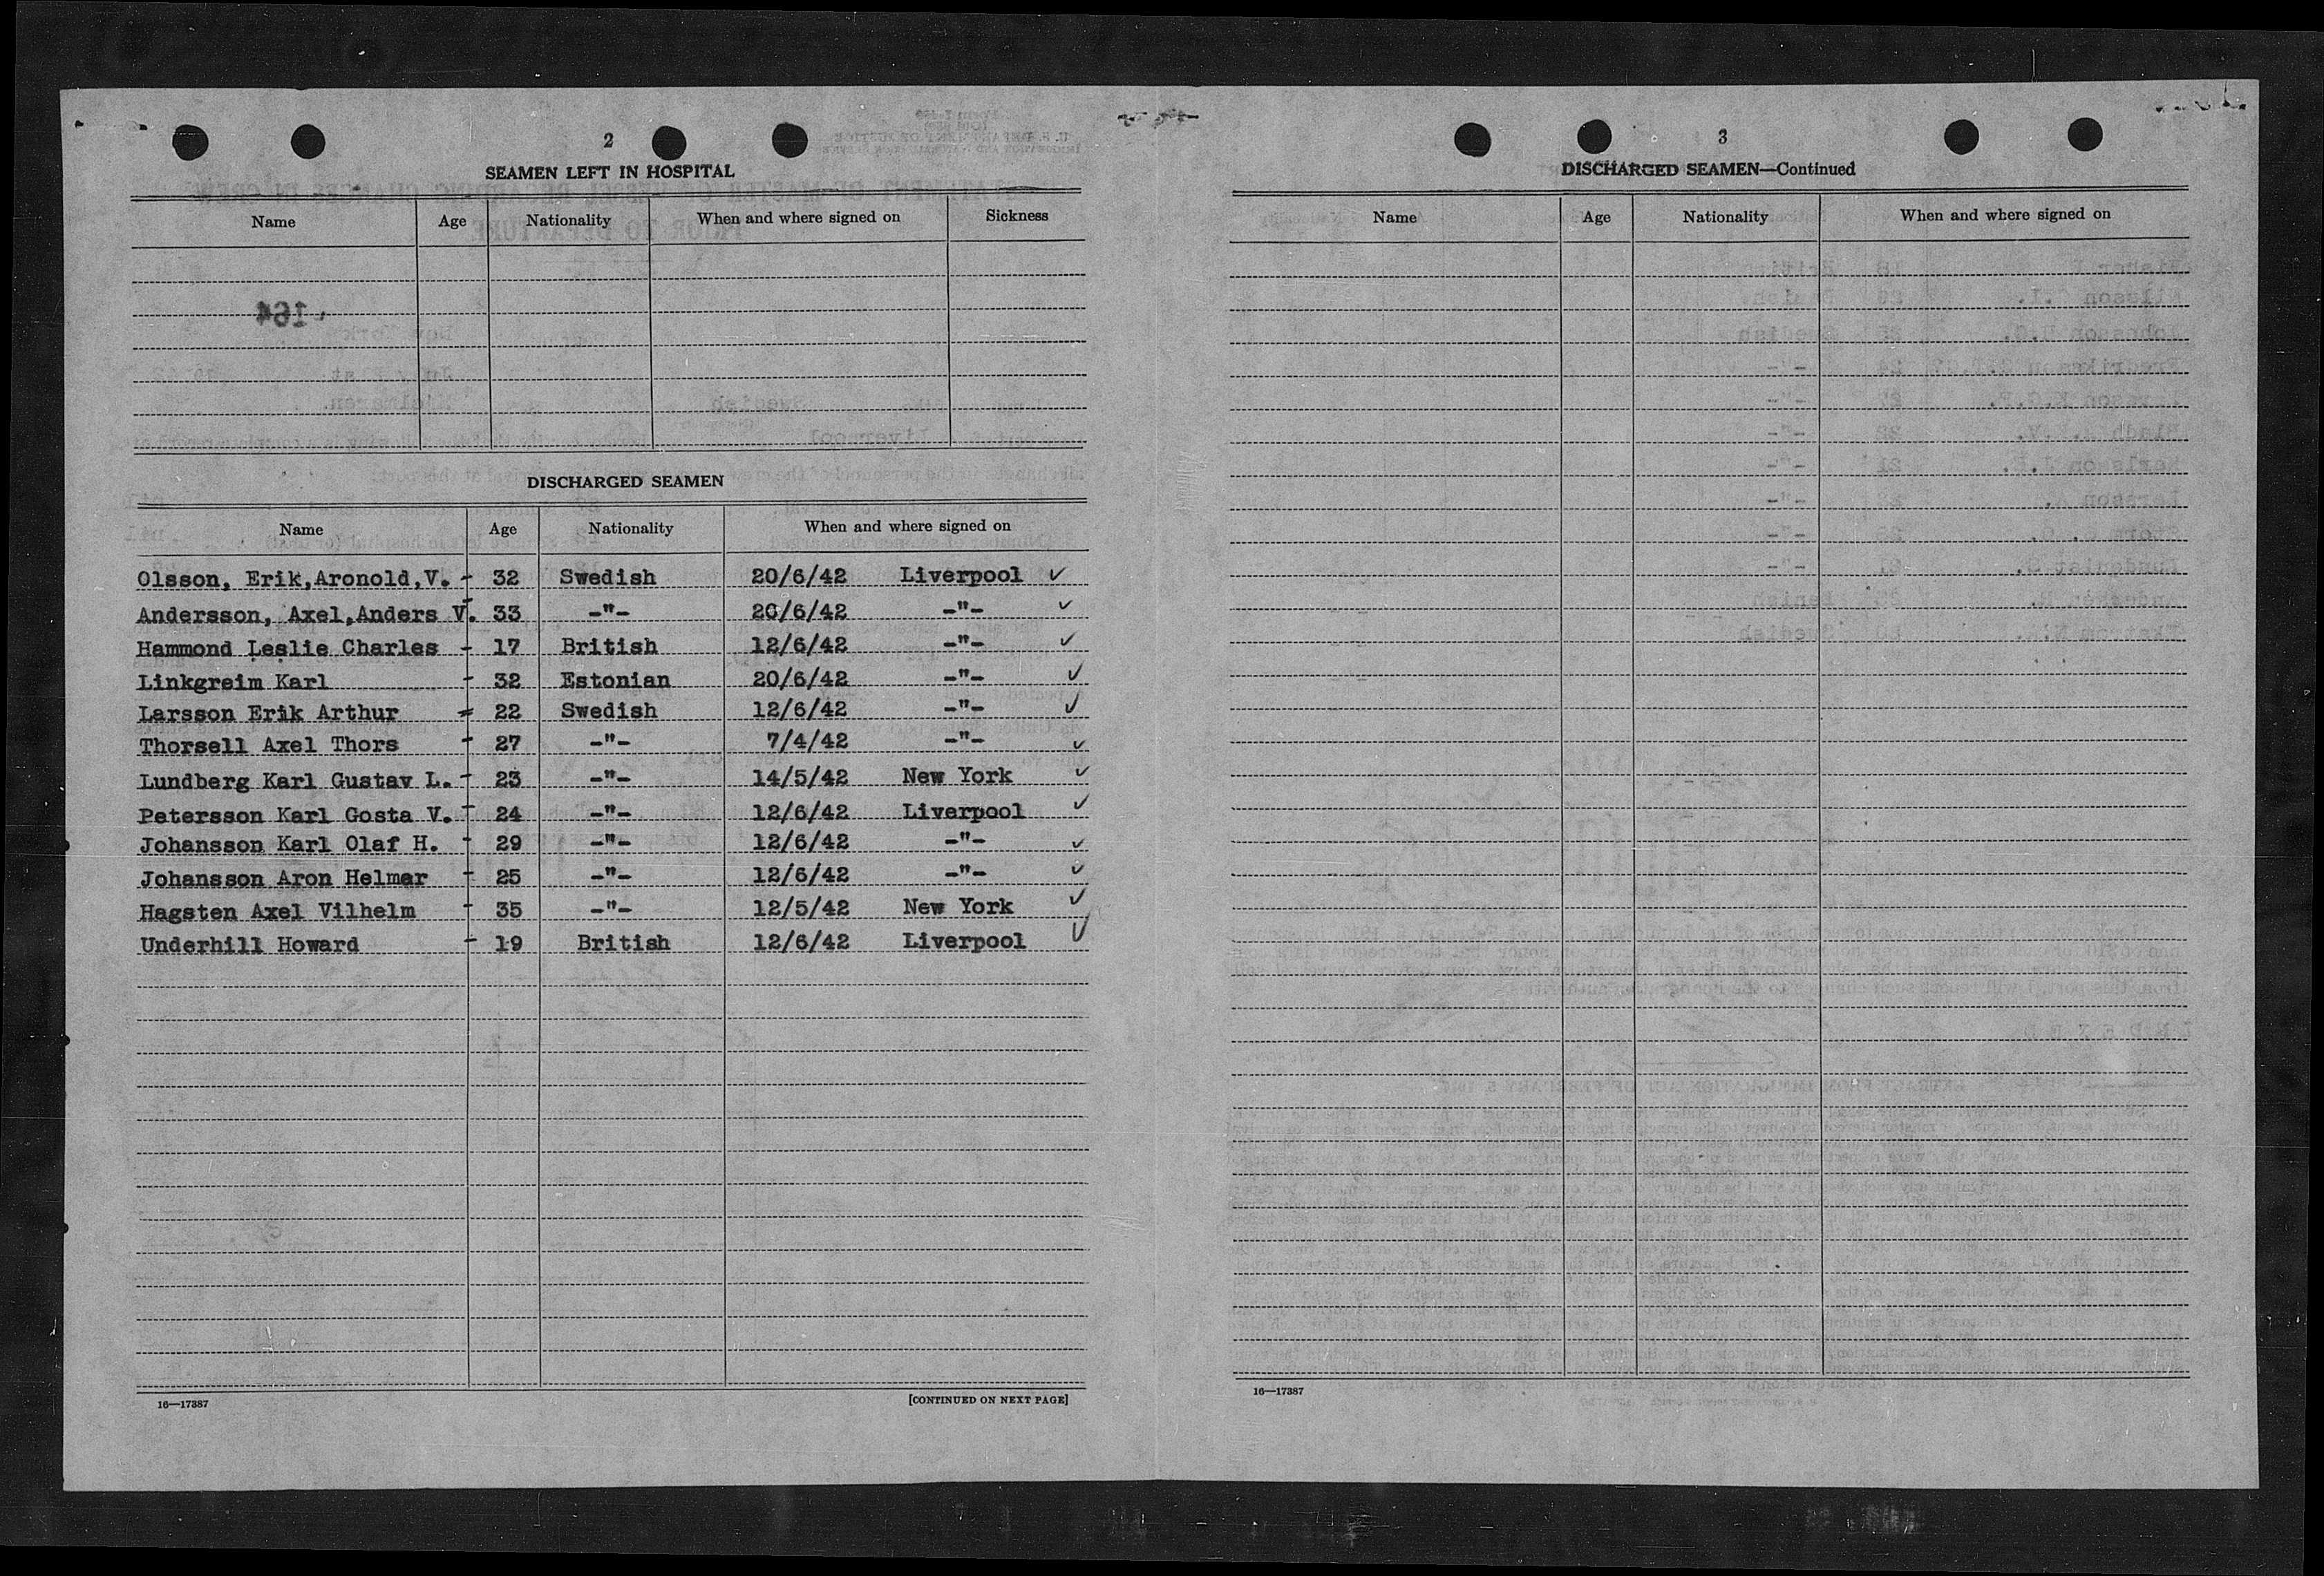 2
SEAMEN LEFT IN HOSPITAL
Name Age Nationality When and where signed on Sickness
164
DISCHARGED SEAMEN
Name Age Nationality When and where signed on
Olsson, Erik,Aronold,V. - 32 Swedish 20/6/42 Liverpool ✓
Andersson, Axel,Anders V. - 33 -"- 20/6/42 -"- ✓
Hammond Leslie Charles - 17 British 12/6/42 -"- ✓
Linkgreim Karl - 32 Estonian 20/6/42 -"- ✓
Larsson Erik Arthur - 22 Swedish 12/6/42 -"- ✓
Thorsell Axel Thors - 27 -"- 7/4/42 -"- ✓
Lundberg Karl Gustav L. - 23 -"- 14/5/42 New York ✓
Petersson Karl Gosta V. - 24 -"- 12/6/42 Liverpool ✓
Johansson Karl Olaf H. - 29 -"- 12/6/42 -"- ✓
Johansson Aron Helmer - 25 -"- 12/6/42 -"- ✓
Hagsten Axel Vilhelm - 35 -"- 12/5/42 New York ✓
Underhill Howard - 19 British 12/6/42 Liverpool ✓
16—17387 [CONTINUED ON NEXT PAGE]
3
DISCHARGED SEAMEN—Continued
Name Age Nationality When and where signed on
16—17387